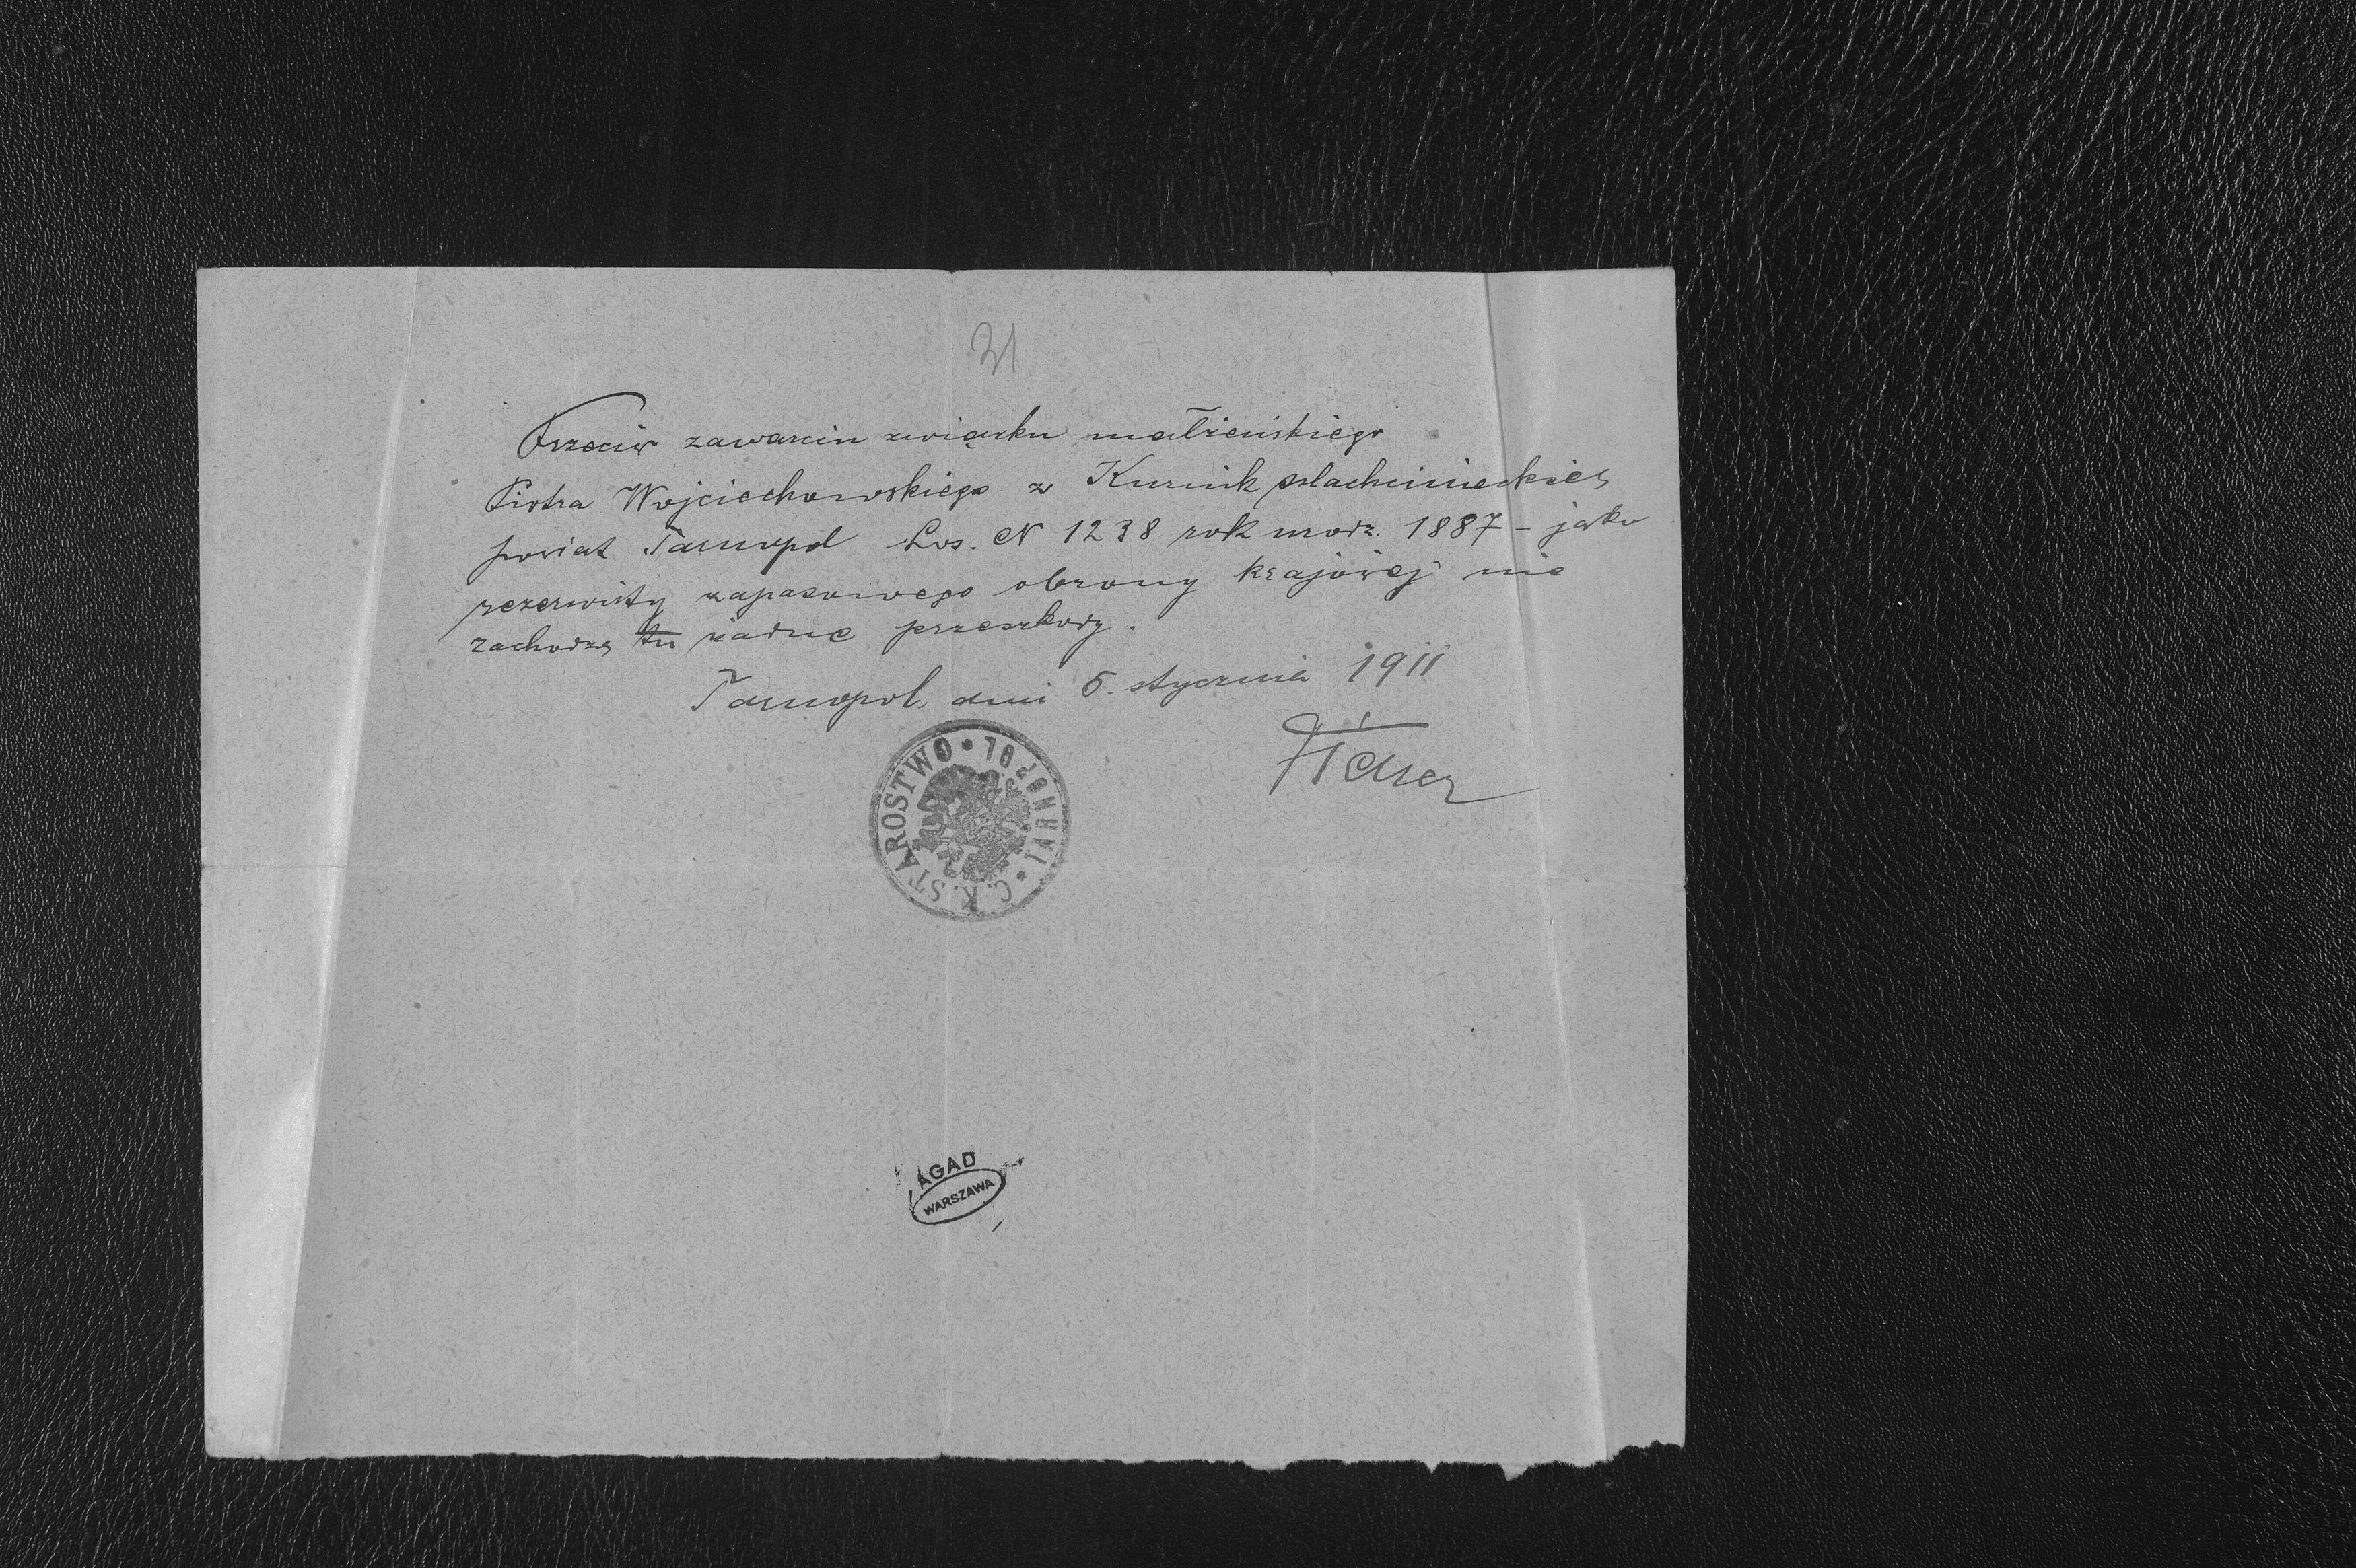 31
Przeciw zawarciu związku małżeńskiego
Piotra Wojciechowskiego z Kurnik szlachcinieckich
powiat Tarnopol Los. N 1238 rok urodz. 1887 - jako
rezerwisty zapasowego obrony krajowej nie
zachodzą tu żadne przeszkody.
Tarnopol, dnia 5. stycznia 1911
C.K. STAROSTWO * TARNOPOL *
AGAD
WARSZAWA